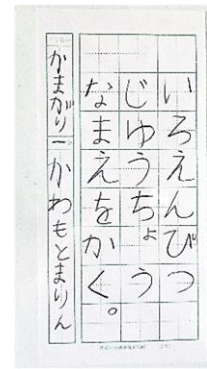 いろえんびつ
じゆうちょう
なまえをかく。
かまがり一かわもとまりん